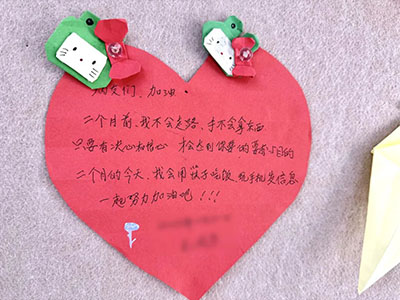 病友们、加油。
二个月前,我不会走路、手不会拿东西
只要有决心和信心 达到你要的目的
二个月的今天,我会用筷子吃饭 玩手机发信息
一起努力加油吧!!!